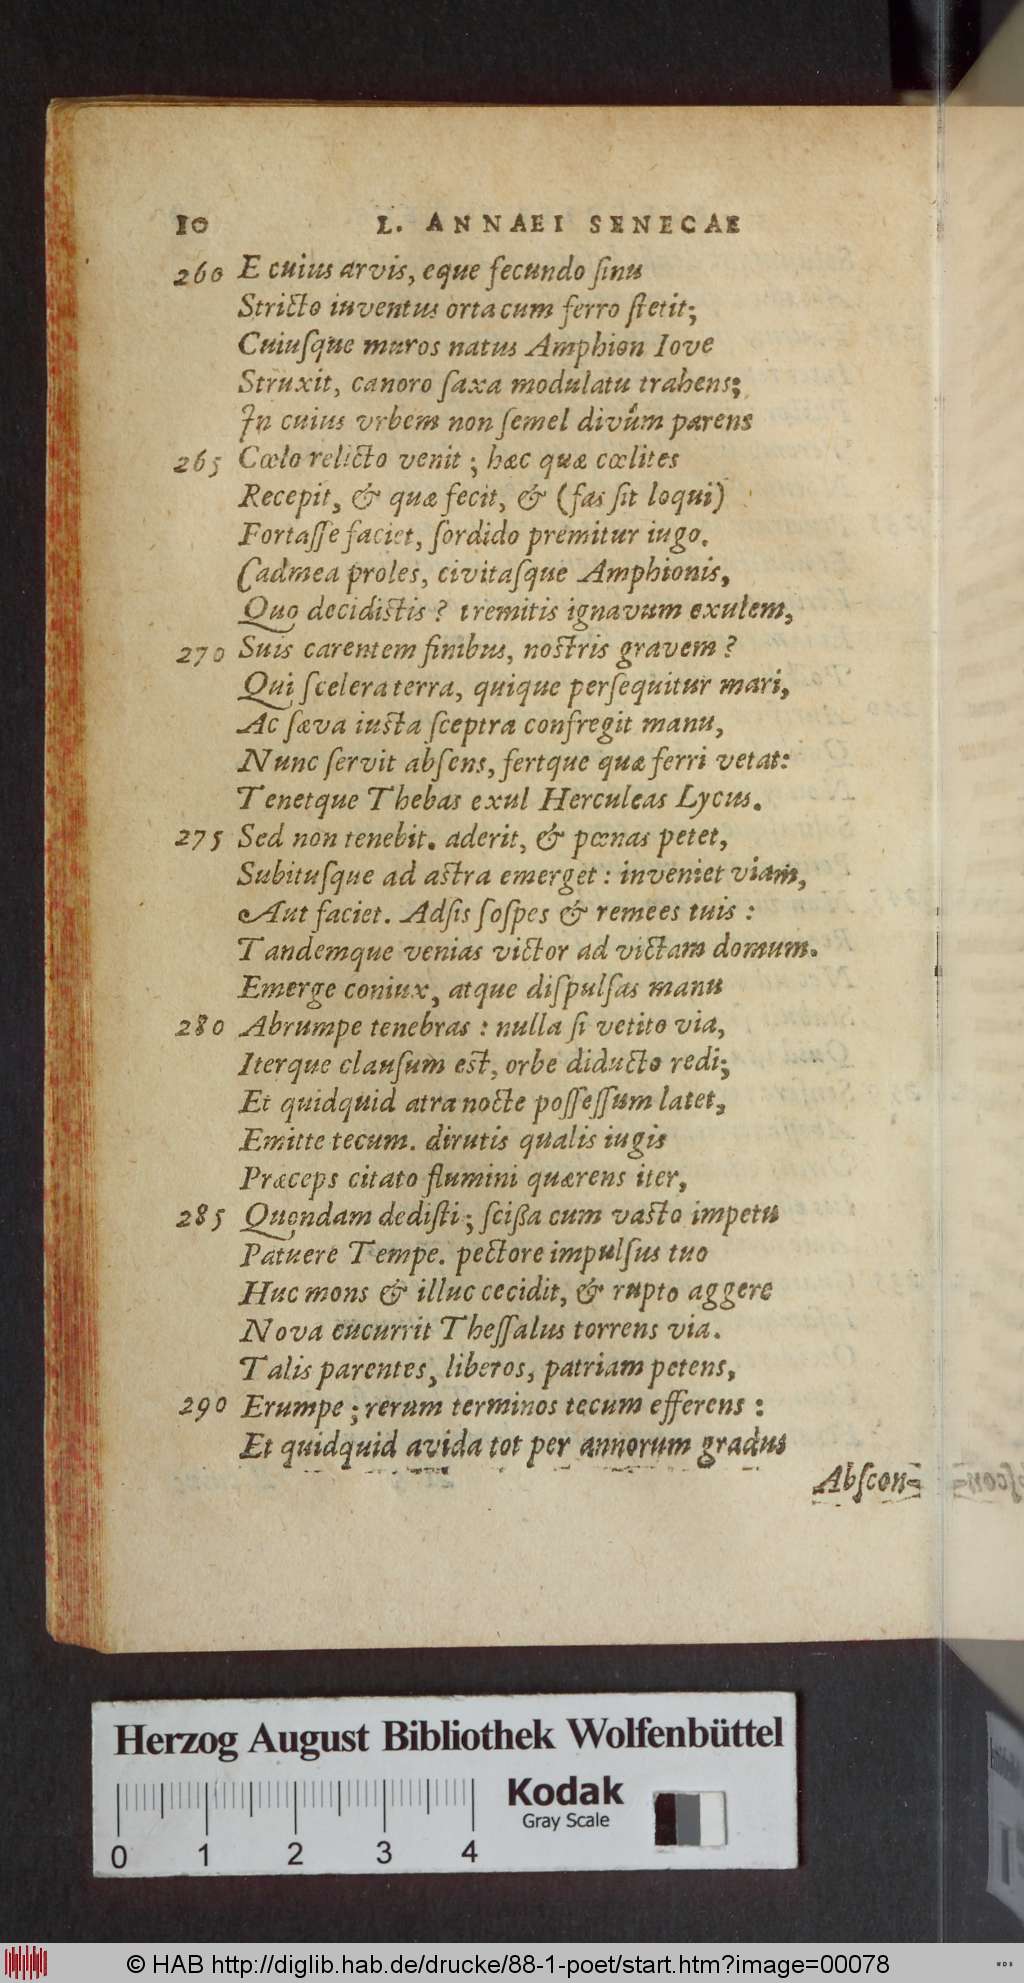 10 L. ANNAEI SENECAE
260 E cuius arvis, eque ſecundo ſinu
Stricto iuventus orta cum ferro ſtetit;
Cuiuſque muros natus Amphion Iove
Struxit, canoro ſaxa modulatu trahens;
In cuius vrbem non ſemel divûm parens
265 Cœlo relicto venit; hæc quæ cœlites
Recepit, & quæ fecit, & (fas ſit loqui)
Fortaſſe faciet, ſordido premitur iugo.
Cadmea proles, civitaſque Amphionis,
Quo decidistis? tremitis ignavum exulem,
270 Suis carentem finibus, nostris gravem?
Qui ſcelera terra, quique perſequitur mari,
Ac ſæva iusta ſceptra confregit manu,
Nunc ſervit abſens, fertque quæ ferri vetat:
Tenetque Thebas exul Herculeas Lycus.
275 Sed non tenebit. aderit, & pœnas petet,
Subituſque ad astra emerget: inveniet viam,
Aut faciet. Adſis ſoſpes & remees tuis:
Tandemque venias victor ad victam domum.
Emerge coniux, atque diſpulſas manu
280 Abrumpe tenebras: nulla ſi vetito via,
Iterque clauſum est, orbe diducto redi;
Et quidquid atra nocte poſſeſſum latet,
Emitte tecum. dirutis qualis iugis
Præceps citato flumini quærens iter,
285 Quondam dediſti; ſcißa cum vasto impetu
Patuere Tempe. pectore impulſus tuo
Huc mons & illuc cecidit, & rupto aggere
Nova cucurrit Theſſalus torrens via.
Talis parentes, liberos, patriam petens,
290 Erumpe; rerum terminos tecum efferens:
Et quidquid avida tot per annorum gradus
Abſcon-
Herzog August Bibliothek Wolfenbüttel
Kodak
Gray Scale
0 1 2 3 4
© HAB http://diglib.hab.de/drucke/88-1-poet/start.htm?image=00078